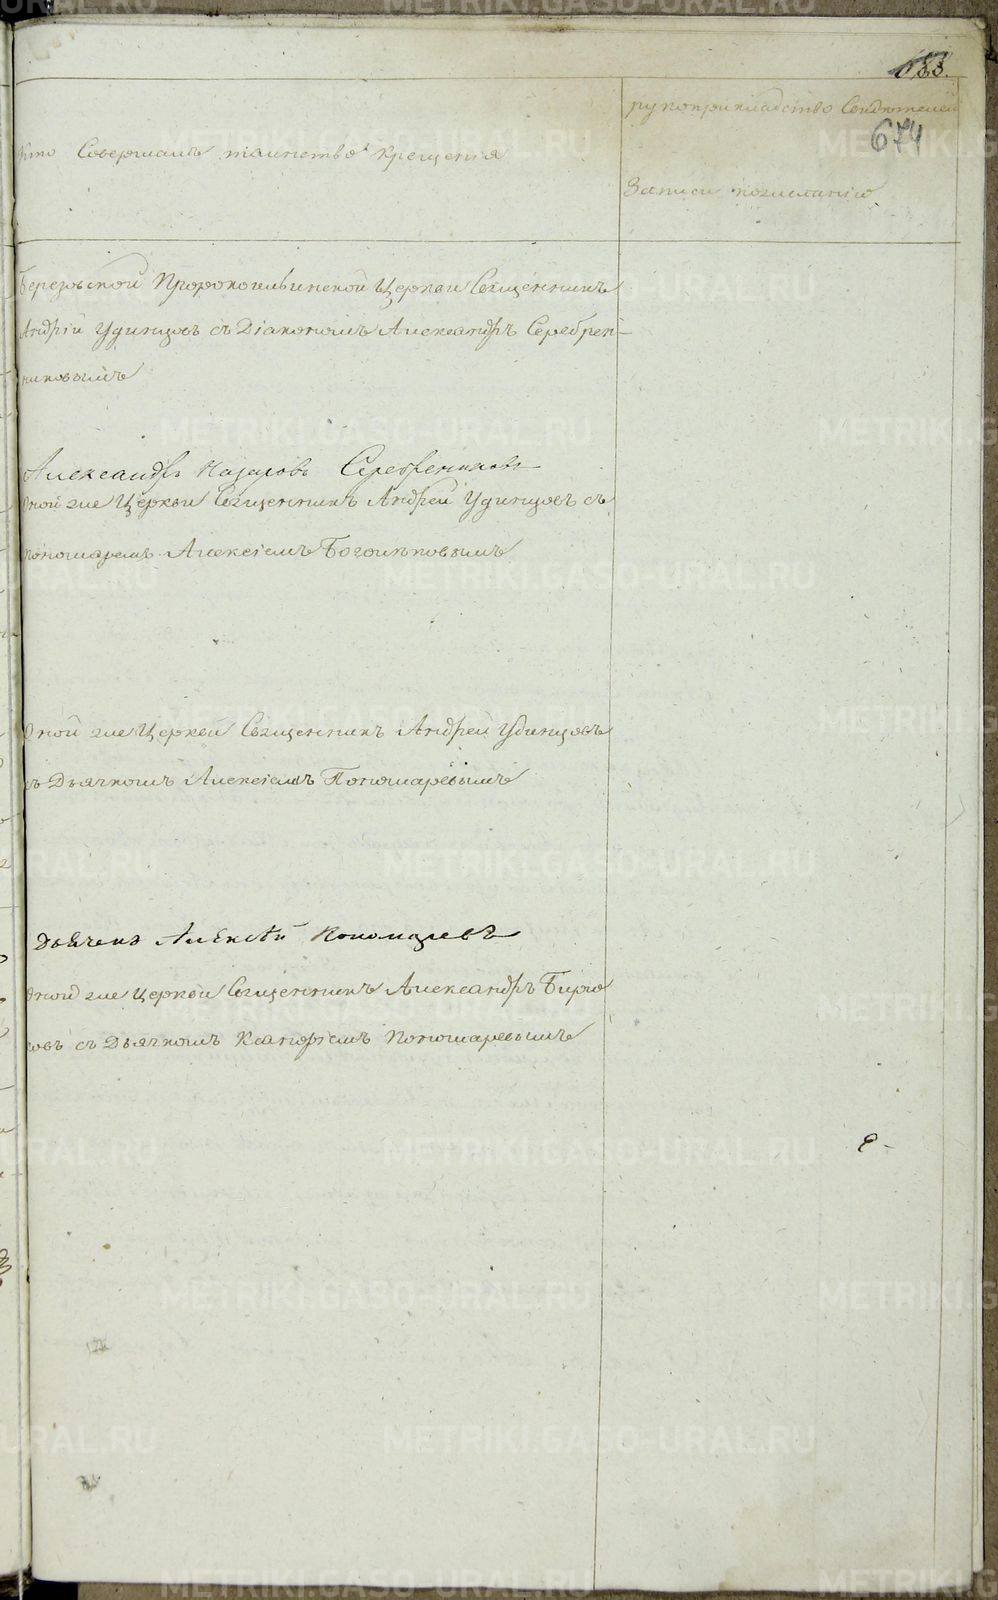 633.
674
Кто Совершалъ таинство Крещенія
рукоприкладство Свидѣтелей
Записи по желанію
Березовской Пророкоильинской Церкви Священникъ
Андрей Удинцовъ съ Діакономъ Александръ Серебрен-
никовымъ
Александръ Назаровъ Серебрениковъ
Оной же Церкви Священникъ Андрей Удинцовъ съ
пономаремъ Алексіемъ
Оной же Церкви Священникъ Андрей Удинцовъ
съ Дьячкомъ Алексіемъ Пономаревымъ
Дьячекъ Алексѣй Пономаревъ
Оной же Церкви Священникъ Александръ Бирю
ковъ съ Дьячкомъ Пономаревымъ